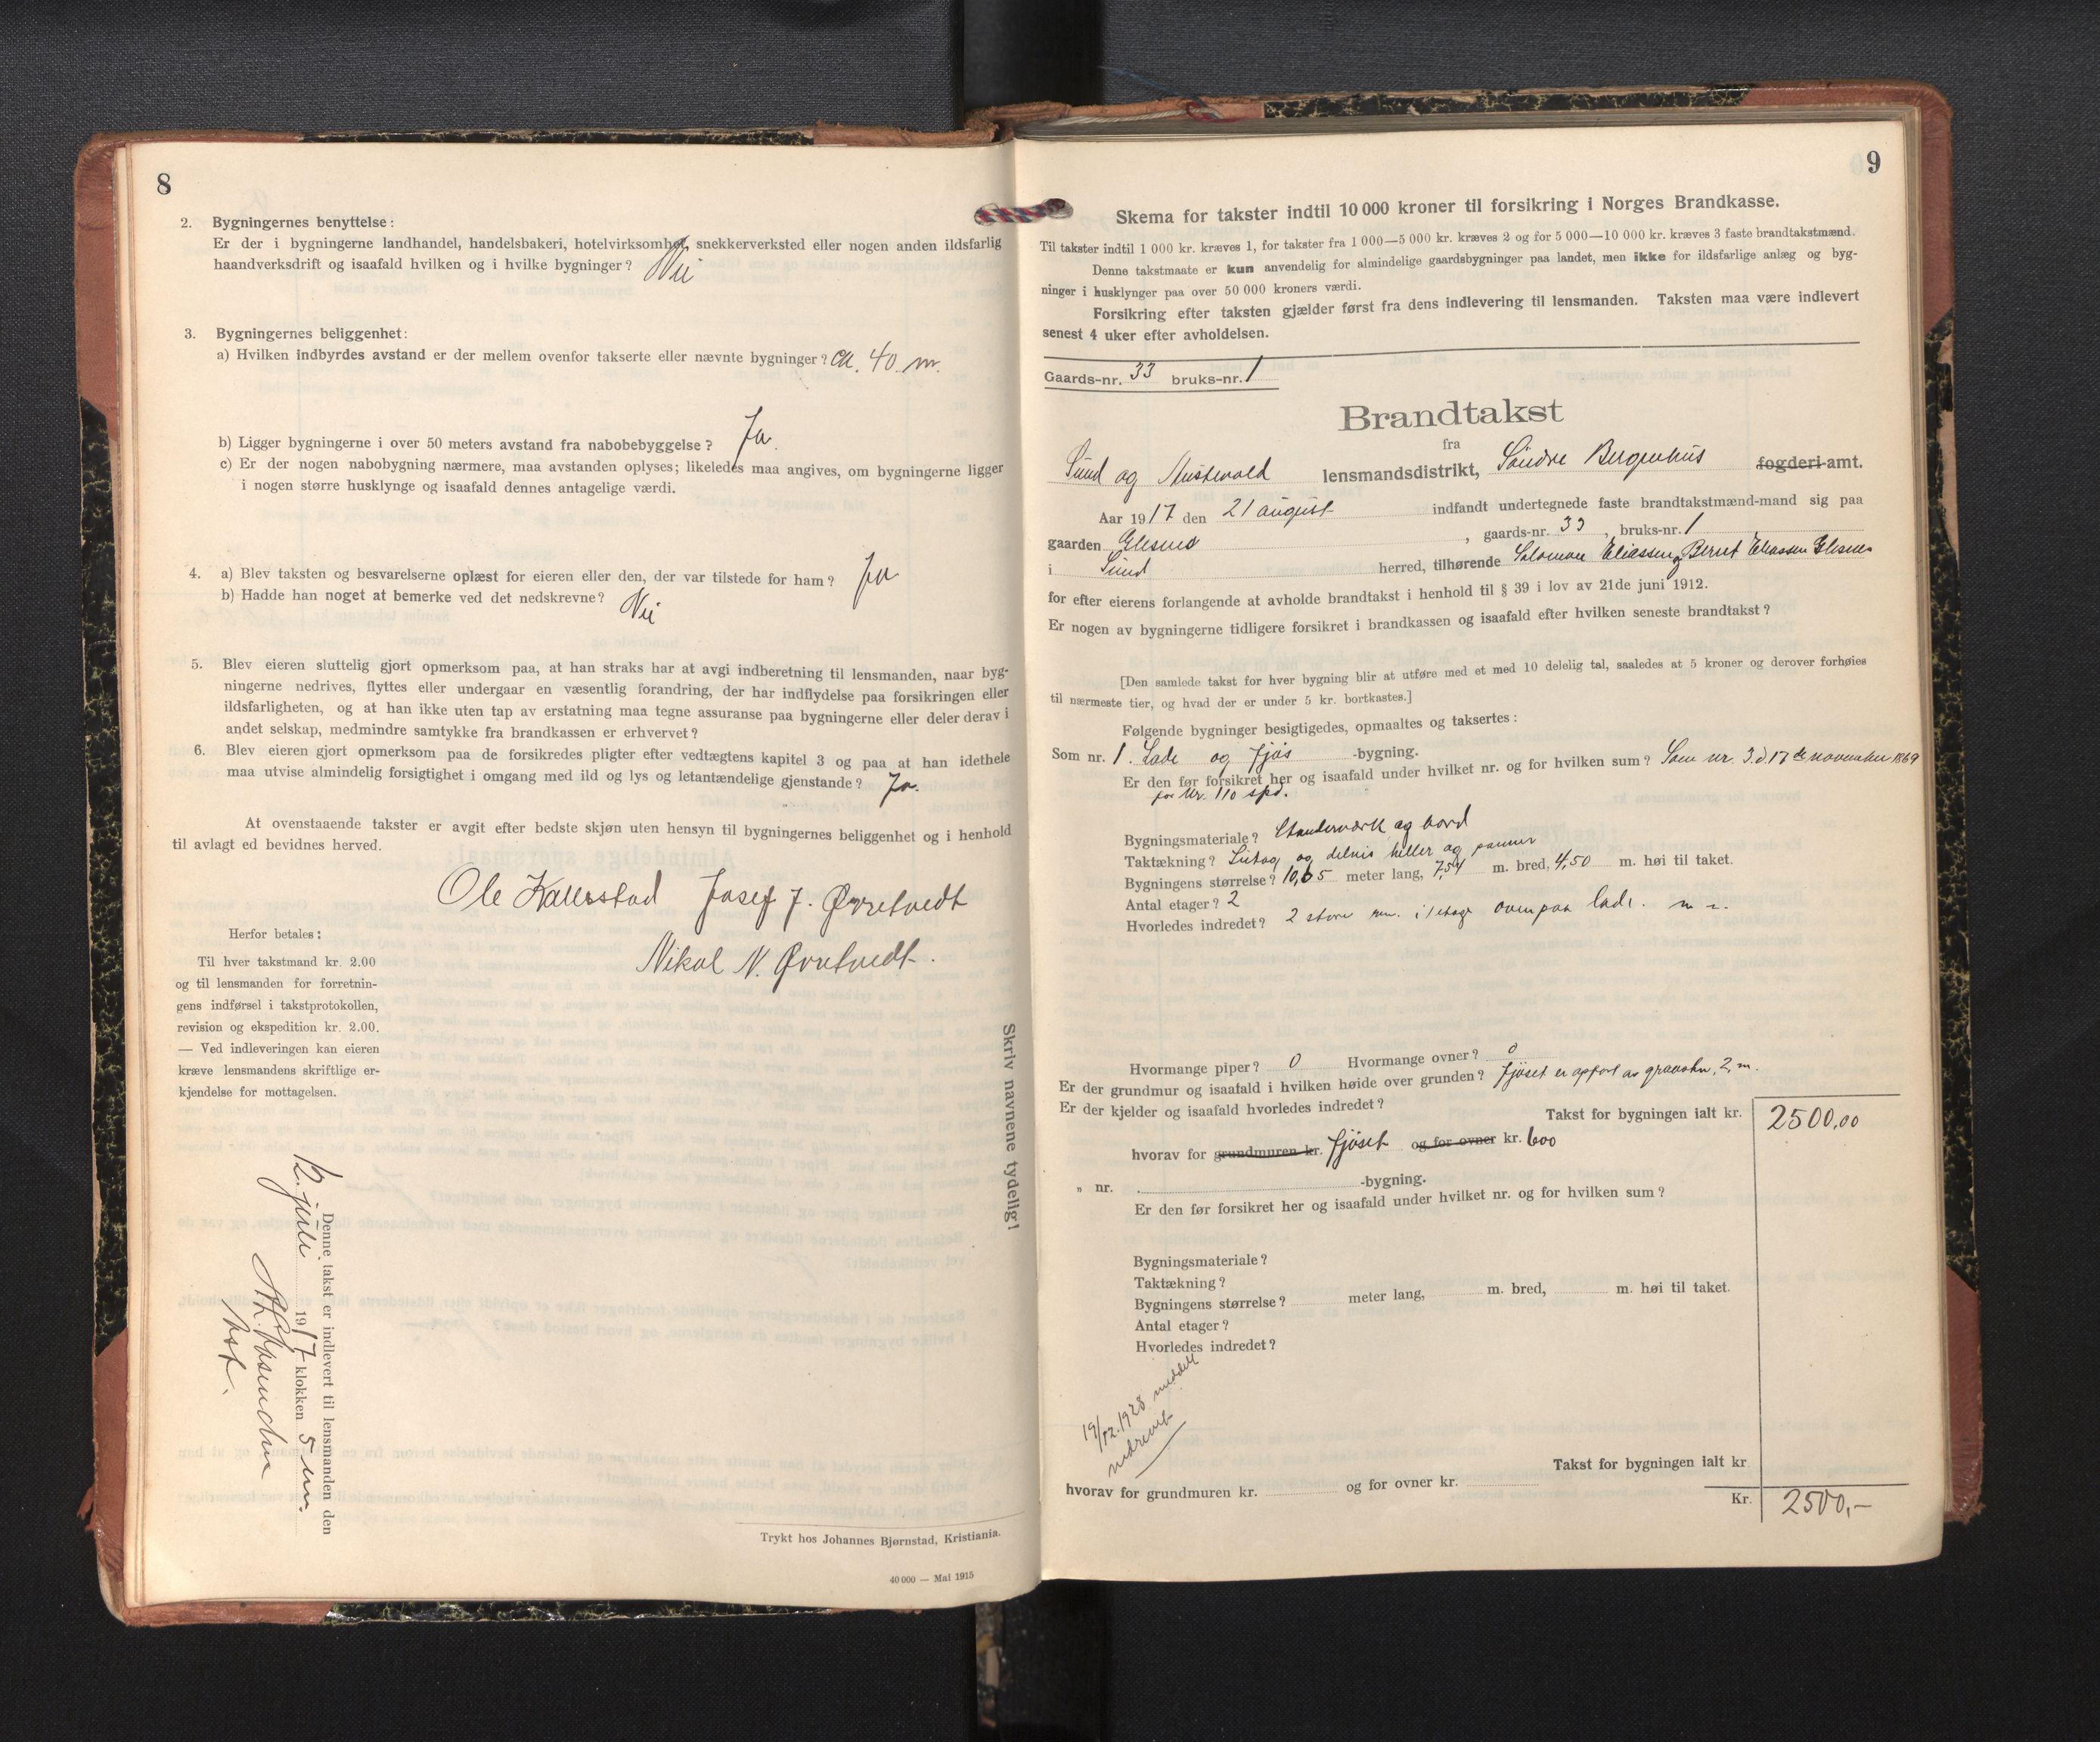 8
2. Bygningernes benyttelse:
Er der i bygningerne landhandel, handelsbakeri, hotelvirksomhet, snekkerverksted eller nogen anden ildsfarlig
haandverksdrift og isaafald hvilken og i hvilke bygninger? Nei
3. Bygningernes beliggenhet:
a) Hvilken indbyrdes avstand er der mellem ovenfor takserte eller nævnte bygninger? ca. 40 m.
b) Ligger bygningerne i over 50 meters avstand fra nabobebyggelse? Ja.
c) Er der nogen nabobygning nærmere, maa avstanden oplyses; likeledes maa angives, om bygningerne ligger
i nogen større husklynge og isaafald dennes antagelige værdi.
4. a) Blev taksten og besvarelserne oplæst for eieren eller den, der var tilstede for ham? Ja
b) Hadde han noget at bemerke ved det nedskrevne? Nei
5. Blev eieren sluttelig gjort opmerksom paa, at han straks har at avgi indberetning til lensmanden, naar byg-
ningerne nedrives, flyttes eller undergaar en væsentlig forandring, der har indflydelse paa forsikringen eller
ildsfarligheten, og at han ikke uten tap av erstatning maa tegne assuranse paa bygningerne eller deler derav i
andet selskap, medmindre samtykke fra brandkassen er erhvervet?
6. Blev eieren gjort opmerksom paa de forsikredes pligter efter vedtægtens kapitel 3 og paa at han idethele
maa utvise almindelig forsigtighet i omgang med ild og lys og letantændelige gjenstande? Ja.
At ovenstaaende takster er avgit efter bedste skjøn uten hensyn til bygningernes beliggenhet og i henhold
til avlagt ed bevidnes herved.
Ole Kallestad Josef J. Ørretvedt
Nikol N. Ørretvedt.
Herfor betales:
Til hver takstmand kr. 2.00
og til lensmanden for forretnin-
gens indførsel i takstprotokollen,
revision og ekspedition kr. 2.00.
— Ved indleveringen kan eieren
kræve lensmandens skriftlige er-
kjendelse for mottagelsen.
Skriv navnene tydelig!
Denne takst er indlevert til lensmanden den
12. juli 1917 klokken 5 em.
Trykt hos Johannes Bjørnstad, Kristiania.
40 000 — Mai 1915
9
Skema for takster indtil 10 000 kroner til forsikring i Norges Brandkasse.
Til takster indtil 1 000 kr. kræves 1, for takster fra 1 000—5 000 kr. kræves 2 og for 5 000—10 000 kr. kræves 3 faste brandtakstmænd.
Denne takstmaate er kun anvendelig for almindelige gaardsbygninger paa landet, men ikke for ildsfarlige anlæg og byg-
ninger i husklynger paa over 50 000 kroners værdi.
Forsikring efter taksten gjælder først fra dens indlevering til lensmanden. Taksten maa være indlevert
senest 4 uker efter avholdelsen.
Gaards-nr. 33 bruks-nr. 1
Brandtakst
fra
Sund og Austevold lensmandsdistrikt, Söndre Bergenhus fogderi-amt.
Aar 1917 den 21 august indfandt undertegnede faste brandtakstmænd-mand sig paa
gaarden Glesnes, gaards-nr. 33, bruks-nr. 1
i Sund herred, tilhørende Salomon Eliassen og Bernt Eliassen Glesnes
for efter eierens forlangende at avholde brandtakst i henhold til § 39 i lov av 21de juni 1912.
Er nogen av bygningerne tidligere forsikret i brandkassen og isaafald efter hvilken seneste brandtakst?
[Den samlede takst for hver bygning blir at utføre med et med 10 delelig tal, saaledes at 5 kroner og derover forhøies
til nærmeste tier, og hvad der er under 5 kr. bortkastes.]
Følgende bygninger besigtigedes, opmaaltes og taksertes:
Som nr. 1. Lade og fjös -bygning.
Er den før forsikret her og isaafald under hvilket nr. og for hvilken sum? Som nr. 3. d. 17de november 1869
for 110 spd.
Bygningsmateriale? Standerværk og bord
Taktækning? delvis heller og panner
Bygningens størrelse? 10,65 meter lang, 7,54 m. bred, 4,50 m. høi til taket.
Antal etager? 2
Hvorledes indredet? 2 store rum. i 1 etage ovenpaa lade.
Hvormange piper? 0 Hvormange ovner? 0
Er der grundmur og isaafald i hvilken høide over grunden? fjöset er opført av graasten, 2 m.
Er der kjelder og isaafald hvorledes indredet?
Takst for bygningen ialt kr. 2500,00
hvorav for grundmuren kr. fjöset og for ovner kr. 600
„ nr. -bygning.
Er den før forsikret her og isaafald under hvilket nr. og for hvilken sum?
Bygningsmateriale?
Taktækning?
Bygningens størrelse? meter lang, m. bred, m. høi til taket.
Antal etager?
Hvorledes indredet?
19/12.1928 meddelt
nedrevet
Takst for bygningen ialt kr
hvorav for grundmuren kr. og for ovner kr.
Kr. 2500,-